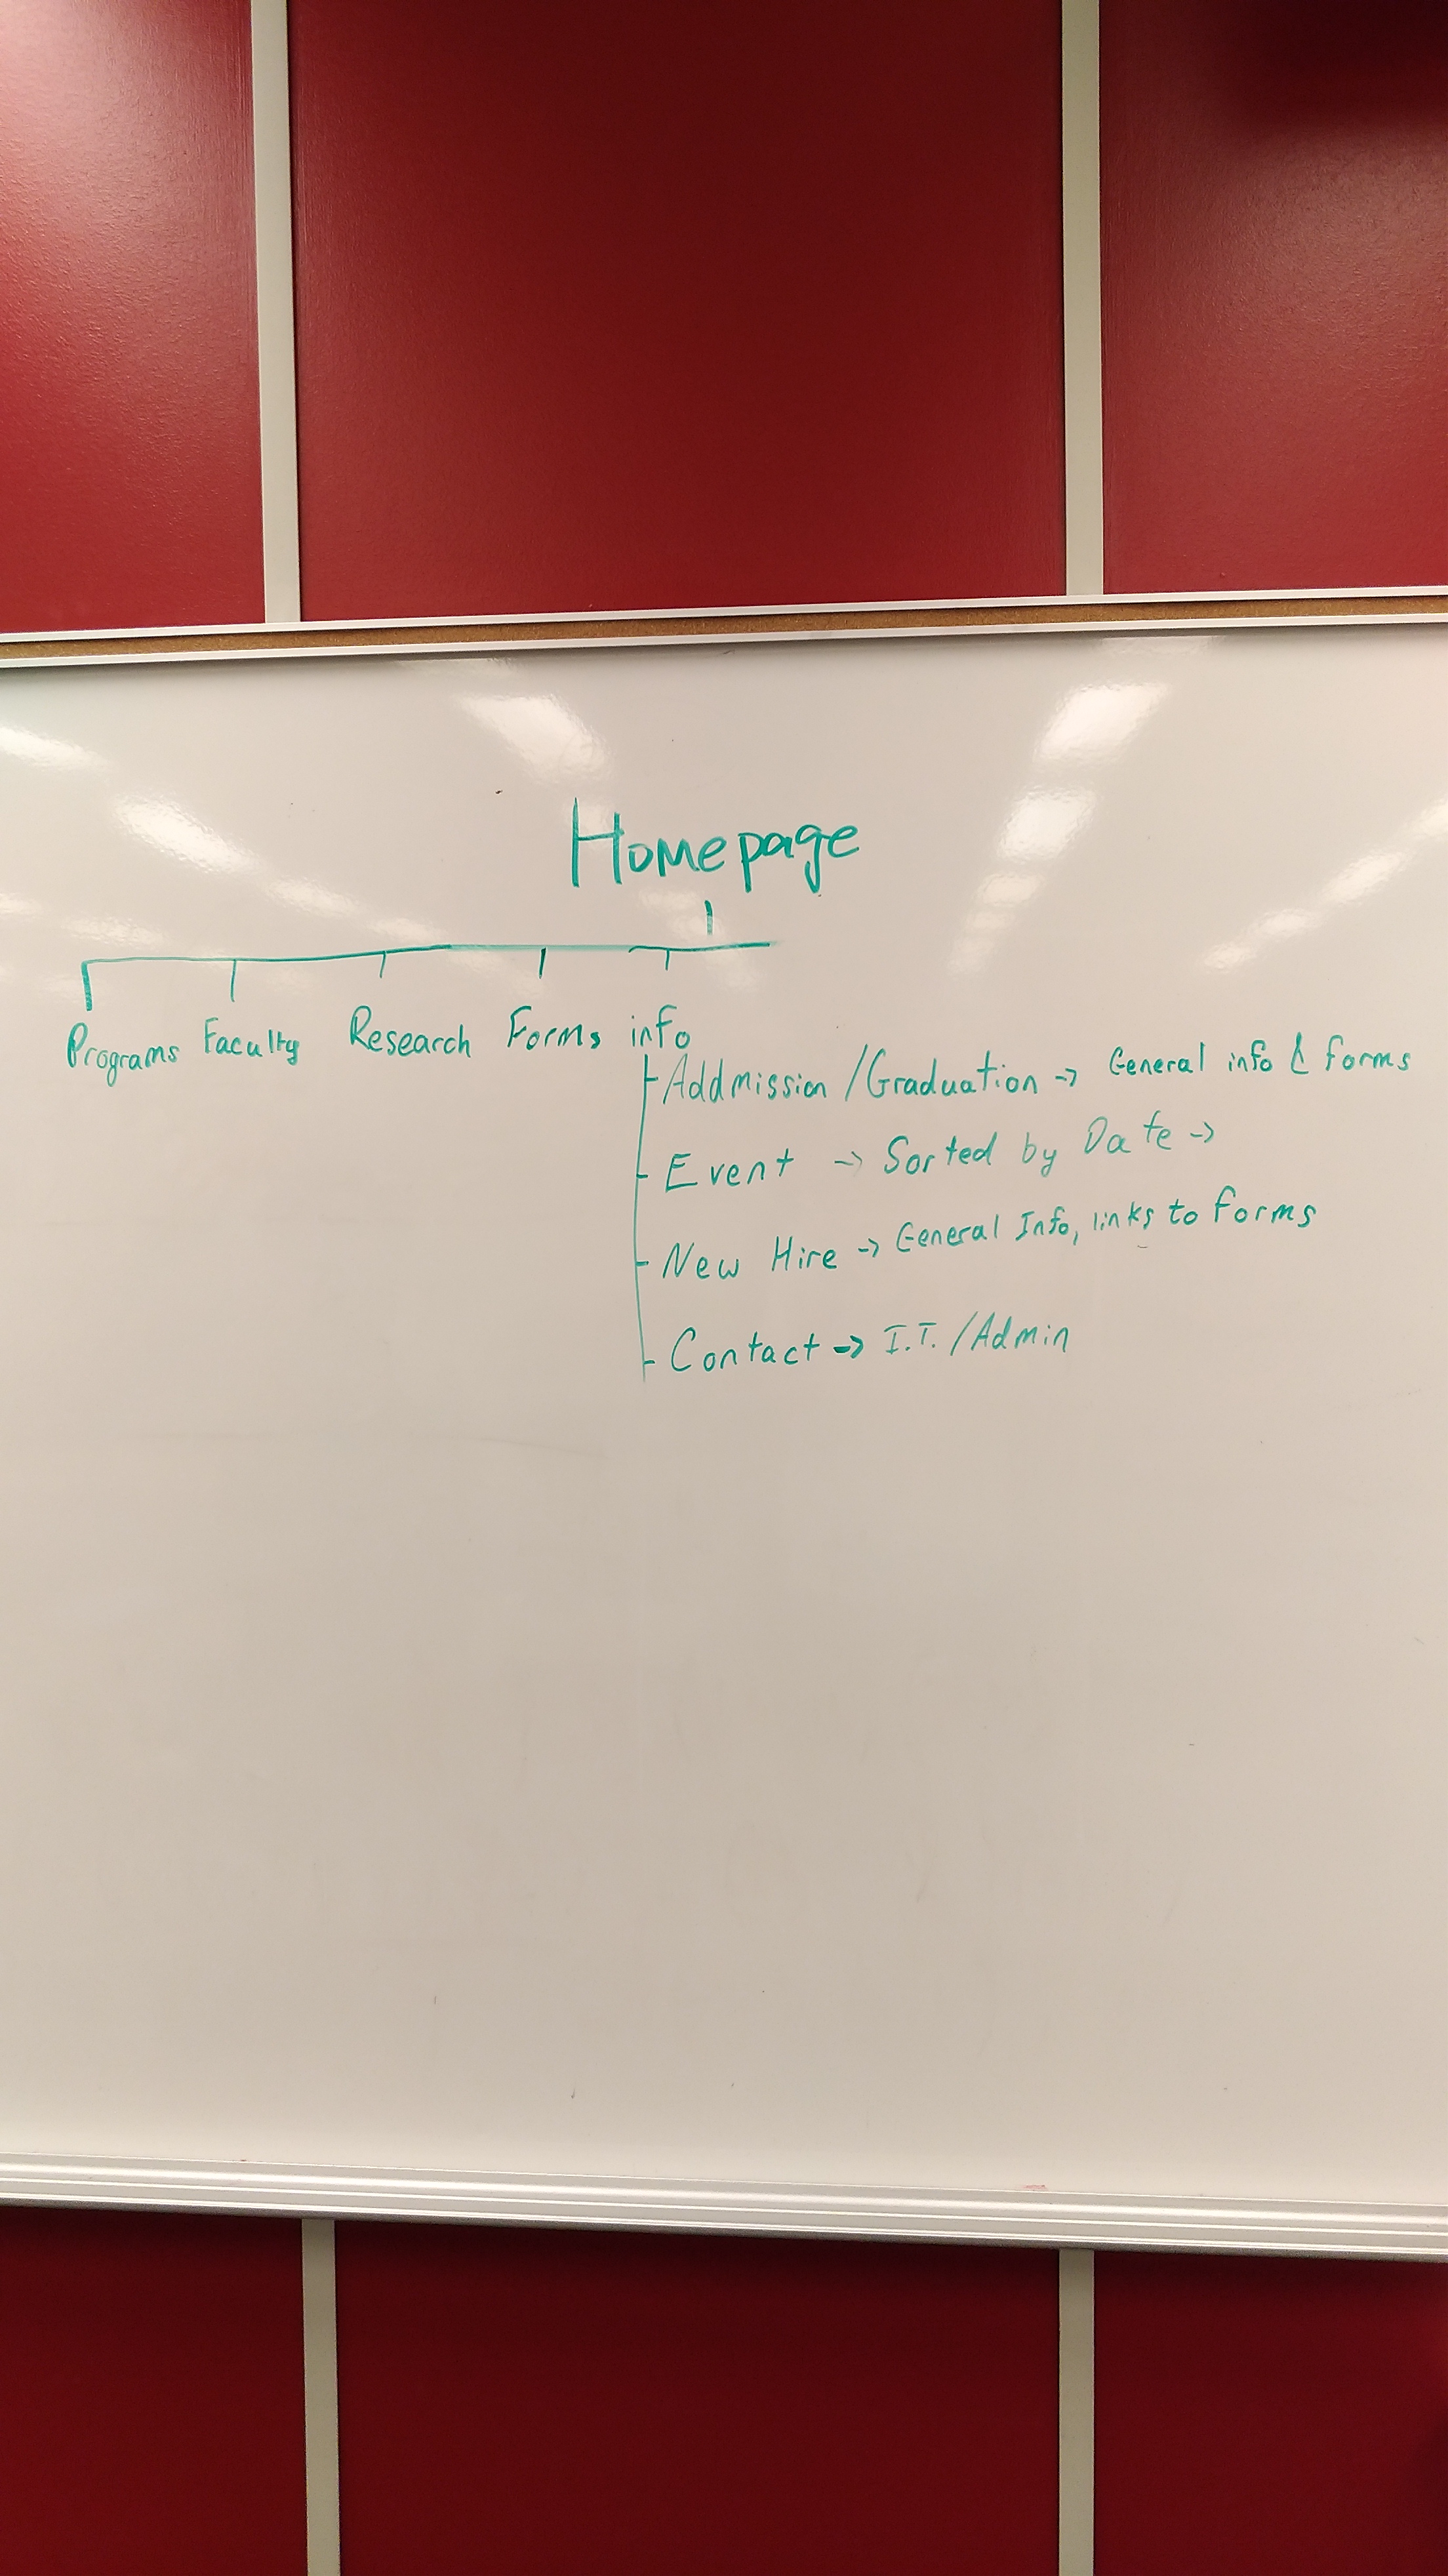 Homepage
Programs Faculty Research Forms info
Addmission/Graduation -> General info & forms
Event -> Sorted by Date ->
New Hire -> General Info, links to forms
Contact -> I.T./Admin